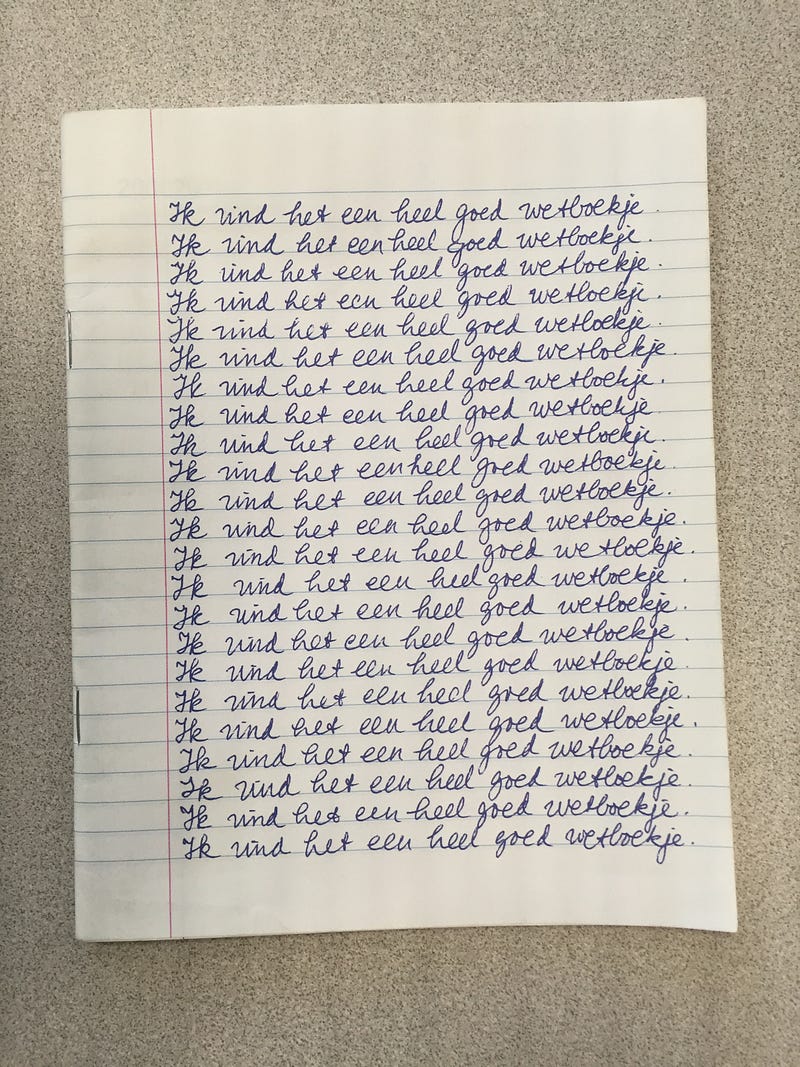 Ik vind het een heel goed wetboekje.
Ik vind het een heel goed wetboekje.
Ik vind het een heel goed wetboekje.
Ik vind het een heel goed wetboekje.
Ik vind het een heel goed wetboekje.
Ik vind het een heel goed wetboekje.
Ik vind het een heel goed wetboekje.
Ik vind het een heel goed wetboekje
Ik vind het een heel goed wetboekje.
Ik vind het een heel goed wetboekje.
Ik vind het een heel goed wetboekje.
Ik vind het een heel goed wetboekje.
Ik vind het een heel goed wetboekje.
Ik vind het een heel goed wetboekje.
Ik vind het een heel goed wetboekje.
Ik vind het een heel goed wetboekje.
Ik vind het een heel goed wetboekje.
Ik vind het een heel goed wetboekje.
Ik vind het een heel goed wetboekje.
Ik vind het een heel goed wetboekje.
Ik vind het een heel goed wetboekje.
Ik vind het een heel goed wetboekje.
Ik vind het een heel goed wetboekje.